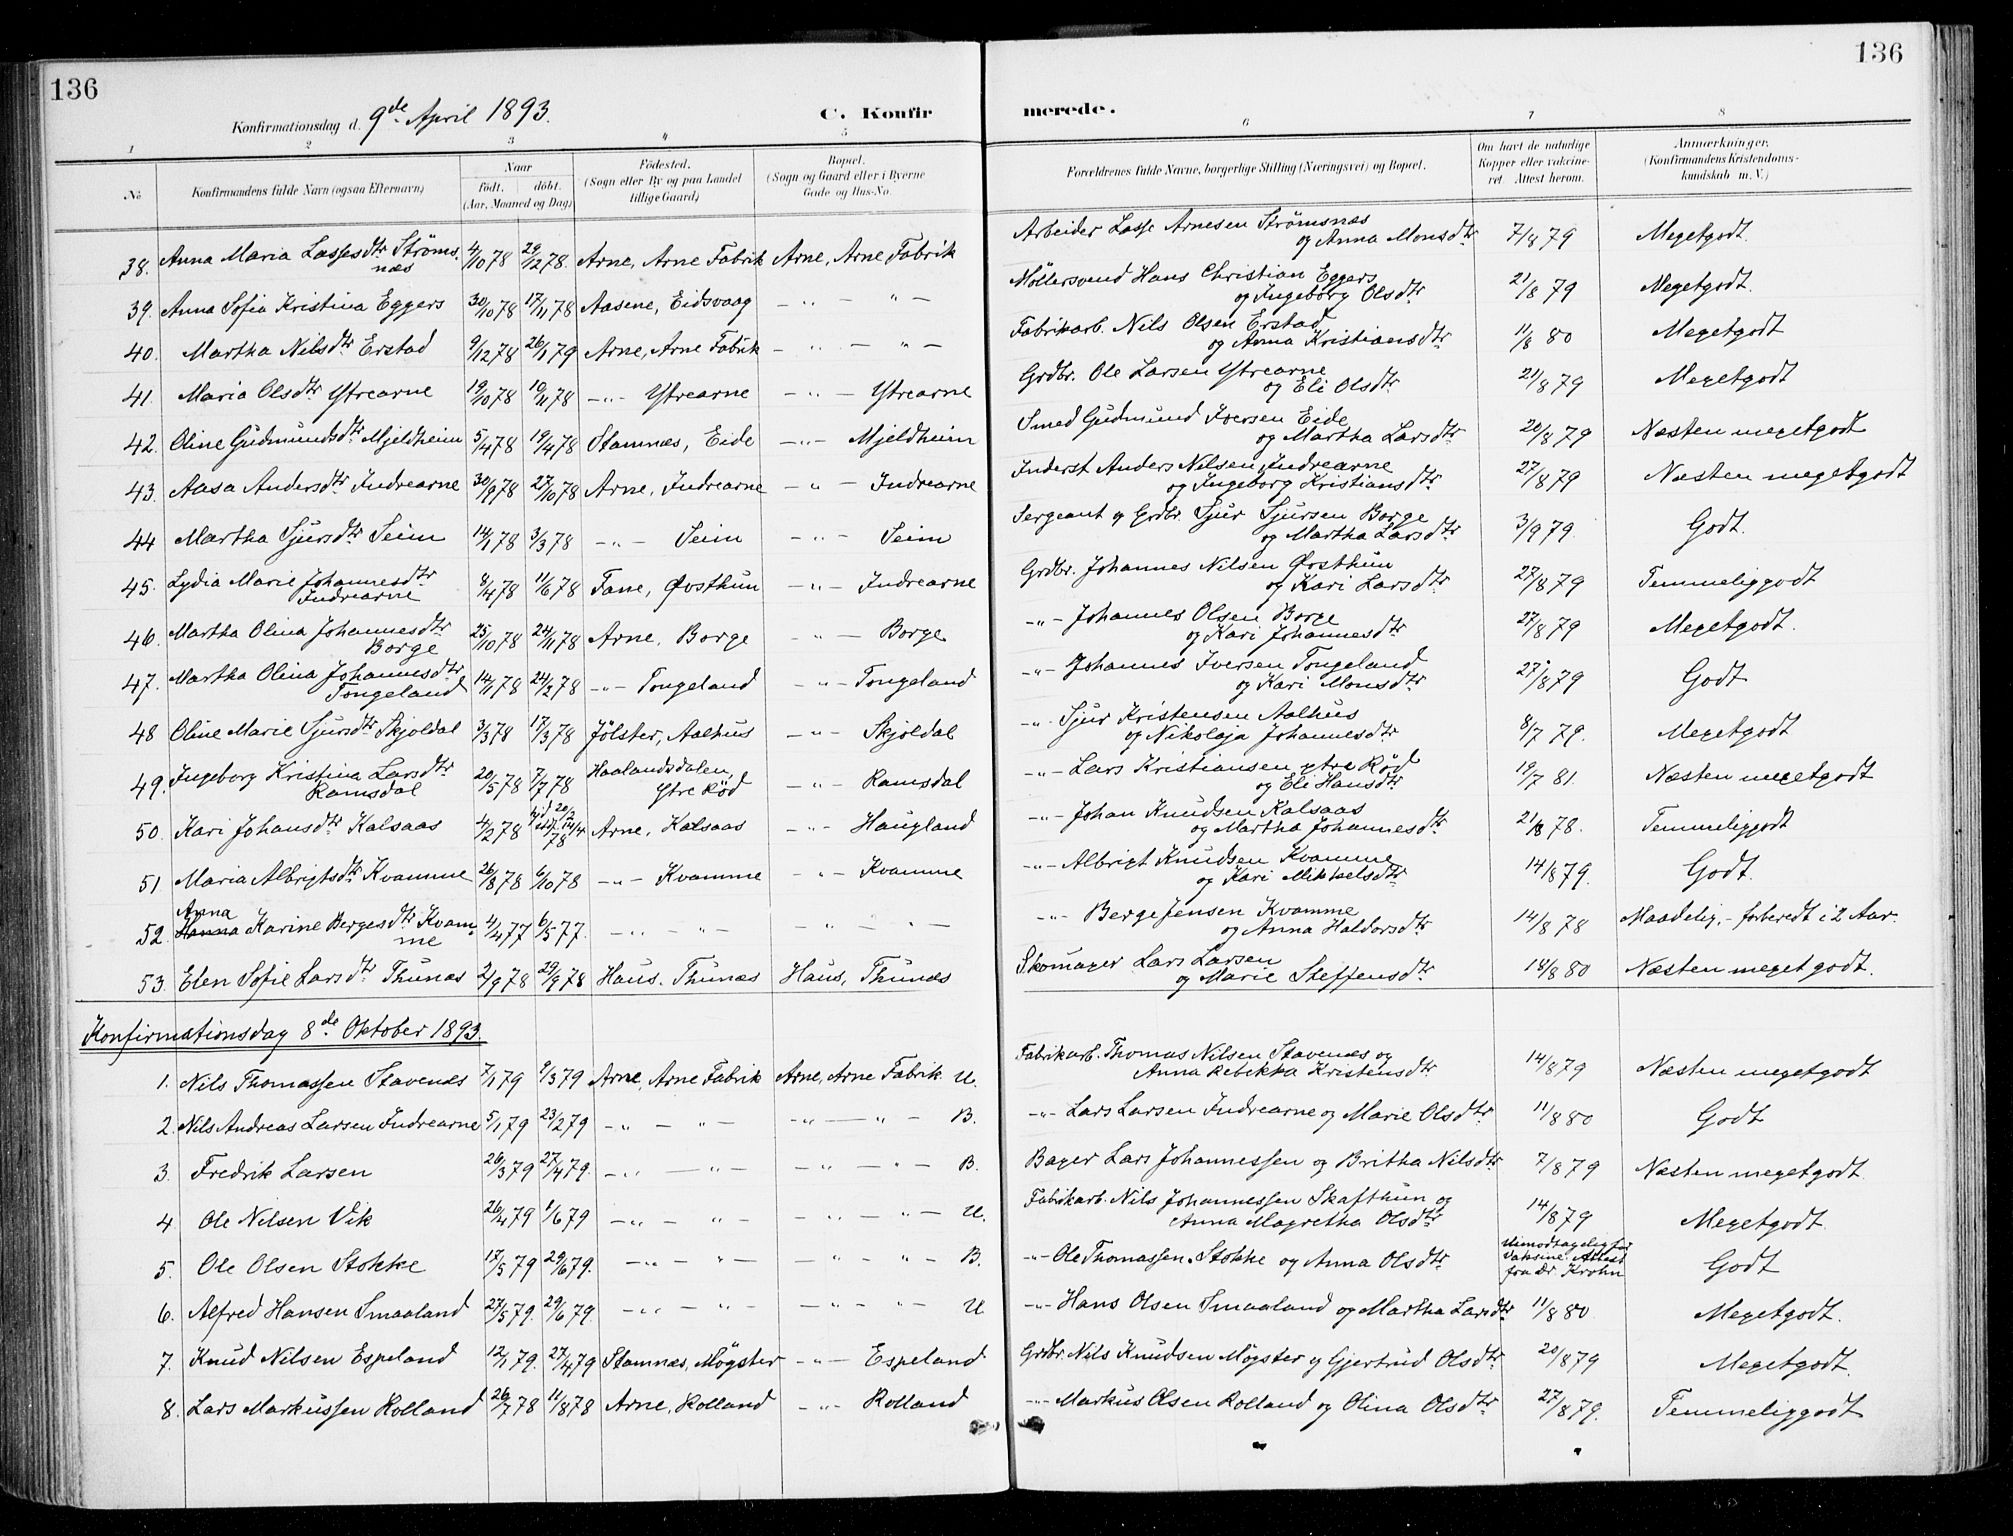 136
136
Konfirmationsdag d. 9de April 1893.
C. Konfir
merede.
1 2 3 4 5 6 7 8
No
Konfirmandens fulde Navn (ogsaa Efternavn)
Naar
födt. döbt.
(Aar, Maaned og Dag)
Födested.
(Sogn eller By og paa Landet
tillige Gaard)
Bopæl.
(Sogn og Gaard eller i Byerne
Gade og Hus-No.
Forældrenes fulde Navne, borgerlige Stilling (Næringsvei) og Bopæl.
Om havt de naturlige
Kopper eller vakcine-
ret. Attest herom.
Anmærkninger.
(Konfirmandens Kristendoms-
kundskab m. V.)
38. Anna Maria Lassesdtr Ströms- 4/10 78 29/12 78. Arne, Arne Fabrik Arne, Arne Fabrik Arbeider Lasse Arnesen Strömsnæs 7/8 79 Megetgodt.
næs og Anna Monsdtr
39. Anna Sofia Kristina Eggers 30/10 78 17/11 78 Aasene, Eidsvaag - " - " - Möllersvend Hans Christian Eggers 21/8 79 Megetgodt.
og Ingeborg Olsdtr
40. Martha Nilsdtr Erstad 9/12 78 26/1 79 Arne, Arne Fabrik - " - " - Fabrikarb. Nils Olsen Erstad 11/8 80 Megetgodt
og Anna Kristiansdtr
41. Maria Olsdtr Ytrearne 19/10 78 10/11 78 -"- Ytrearne - " - Ytrearne Grdbr. Ole Larsen Ytrearne 21/8 79 Megetgodt
og Eli Olsdtr
42. Oline Gudmundsdtr Mjeldheim 5/4 78 19/4 78 Stamnæs, Eide -"- Mjeldheim Smed Gudmund Iversen Eide 20/8 79 Næsten megetgodt
og Martha Larsdtr
43. Aasa Andersdtr Indrearne 30/9 78 27/10 78 Arne, Indrearne - " - Indrearne Inderst Anders Nilsen Indrearne 27/8 79 Næsten megetgodt
og Ingeborg Kristiansdtr
44 Martha Sjursdtr Seim 14/1 78 3/3 78 -"- Seim -"- Seim Sergeant og Grdbr. Sjur Sjursen Borge 3/9 79. Godt.
og Martha Larsdtr
45. Lydia Marie Johannesdtr 8/4 78 11/6 78 Fane, Øvsthun -"- Indrearne Grdbr. Johannes Nilsen Øvsthun 27/8 79 Temmeliggodt
Indrearne og Kari Larsdtr
46. Martha Olina Johannesdtr 25/10 78 24/11 78 Arne, Borge -"- Borge -"- Johannes Olsen Borge 27/8 79 Megetgodt.
Borge og Kari Johannesdtr
47. Martha Olina Johannesdtr 14/1 78 24/2 78 -"- Tongeland -"- Tongeland -"- Johannes Iversen Tongeland 27/8 79 Godt
Tongeland og Kari Monsdtr
48 Oline Marie Sjursdtr Skjoldal 3/3 78 17/3 78 Jölster, Aalhus -"- Skjoldal -"- Sjur Kristensen Aalhus 8/7 79. Megetgodt
og Nikolaja Johannesdtr
49. Ingeborg Kristina Larsdtr 20/5 78 7/7 78 Haalandsdalen, -"- Ramsdal -"- Lars Kristiansen ytre Röd 19/7 81. Næsten megetgodt
Ramsdal Ytre Röd og Eli Hansdtr
50. Kari Johansdtr Kalsaas 4/2 78 78 Arne, Kalsaas -"- Haugland -"- Johan Knudsen Kalsaas 21/8 78. Temmeliggodt
og Martha Johannesdtr
51 Maria Albrigtsdtr Kvamme 26/8 78 6/10 78 -"- Kvamme -"- Kvamme -"- Albrigt Knudsen Kvamme 14/8 79. Godt.
og Kari Mikkelsdtr
Anna
52. Hanna Karine Bergesdtr Kvam- 4/4 77 6/5 77. -"- -"- - " - " - -"- Berge Jensen Kvamme 14/8 78 Maadelig, - forberedt i 2 Aar.
me og Anna Haldorsdtr
53. Elen Sofie Larsdtr Thunæs 2/9 78 29/9 78 Haus, Thunæs Haus, Thunæs Skomager Lars Larsen 14/8 80 Næsten megetgodt.
og Marie Steffensdtr
Konfirmationsdag 8de Oktober 1893.
1. Nils Thomassen Stavenæs 7/1 79 9/3 79 Arne, Arne Fabrik Arne, Arne Fabrik U. Fabrikarb. Thomas Nilsen Stavenæs og 14/8 79 Næsten megetgodt
Anna Rebekka Kristensdtr
2. Nils Andreas Larsen Indrearne 5/1 79 23/2 79 -"- -"- -"- " - B. -"- Lars Larsen Indrearne og Marie Olsdtr 11/8 80 Godt
3. Fredrik Larsen 26/3 79 27/4 79. -"- -"- -"- " - B. Bager Lars Johannessen og Britha Nilsdtr 7/8 79 Næsten megetgodt
4 Ole Nilsen Vik 26/4 79 1/6 79 -"- " - - " - " - U. Fabrikarb. Nils Johannessen Skafthun og 14/8 79 Megetgodt.
Anna Magretha Olsdtr
5. Ole Olsen Stokke 17/5 79 29/6 79. -"- " - - " - " - B. -"- Ole Thomassen Stokke og Anna Olsdtr Uimodtagelig for Godt
Vaksine. Attest
fra Dr. Krohn
6. Alfred Hansen Smaaland 27/5 79. 29/6 79. -"- " - - " - " - U -"- Hans Olsen Smaaland og Martha Larsdtr 11/8 80 Megetgodt.
7. Knud Nilsen Espeland 12/1 79. 27/4 79 Stamnæs, Mögster -"- Espeland Grdbr. Nils Knudsen Mögster og Gjertrud Olsdtr 20/8 79 Megetgodt.
8. Lars Markussen Rolland 26/7 78 11/8 78 Arne, Rolland -"- Rolland -"- Markus Olsen Rolland og Olina Olsdtr 27/8 79. Temmeliggodt